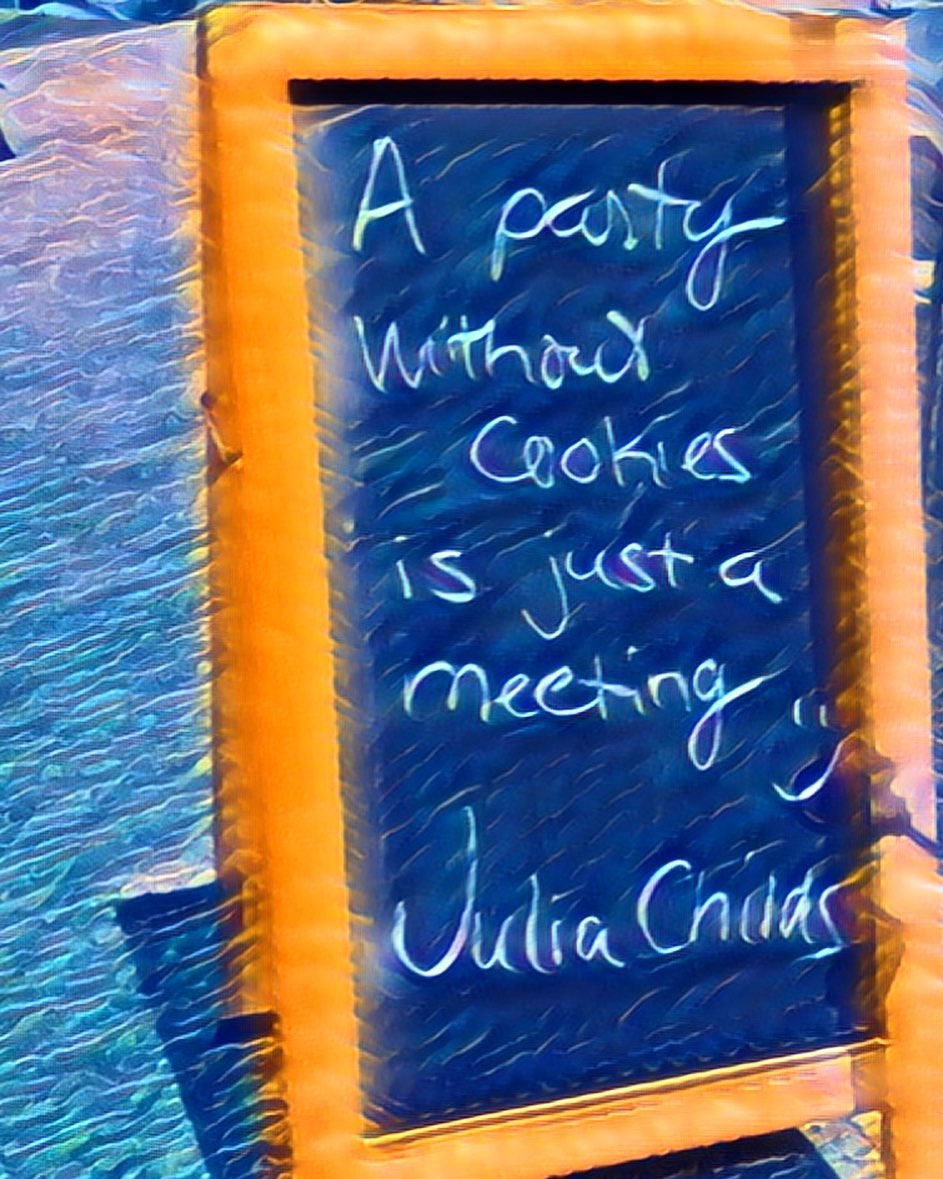 A party
Without
Cookies
is just a
meeting
Julia Childs